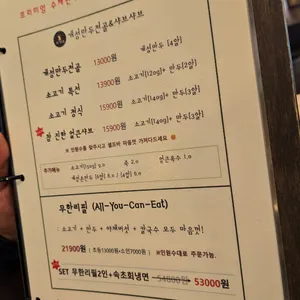 프리미엄 수제만
개성만두전골&샤브샤브
개성만두전골 13000원 만두[4알]
소고기 특선 13900원 소고기[120g]+ 만두[2알]
소고기 정식 15900원 소고기[140g]+ 만두[3알]
참 신한 얼큰샤브 15900원 소고기[140g]+ 만두[3알]
※ 인원수를 맞추시고 셀프바 마음껏 가져다드세요
추가메뉴
무한리필 (All-You-Can-Eat)
: 소고기 + 만두 + 야채버섯 + 칼국수 모두 마음껏!
21900원 (초등13000원 소인7000원) ※인원수대로 주문가능.
SET 무한리필2인+속초회냉면 54800원 53000원